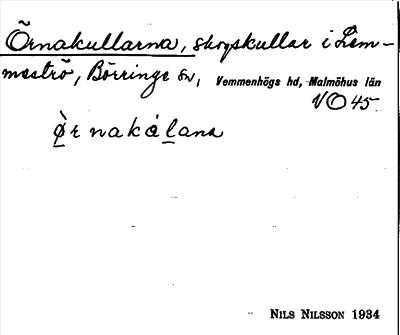 Örnakullarna, skogskullar i Lem-
meströ, Börringe sn, Vemmenhögs hd, Malmöhus län
VO 45
ø̀rnakáḷana
NILS NILSSON 1934